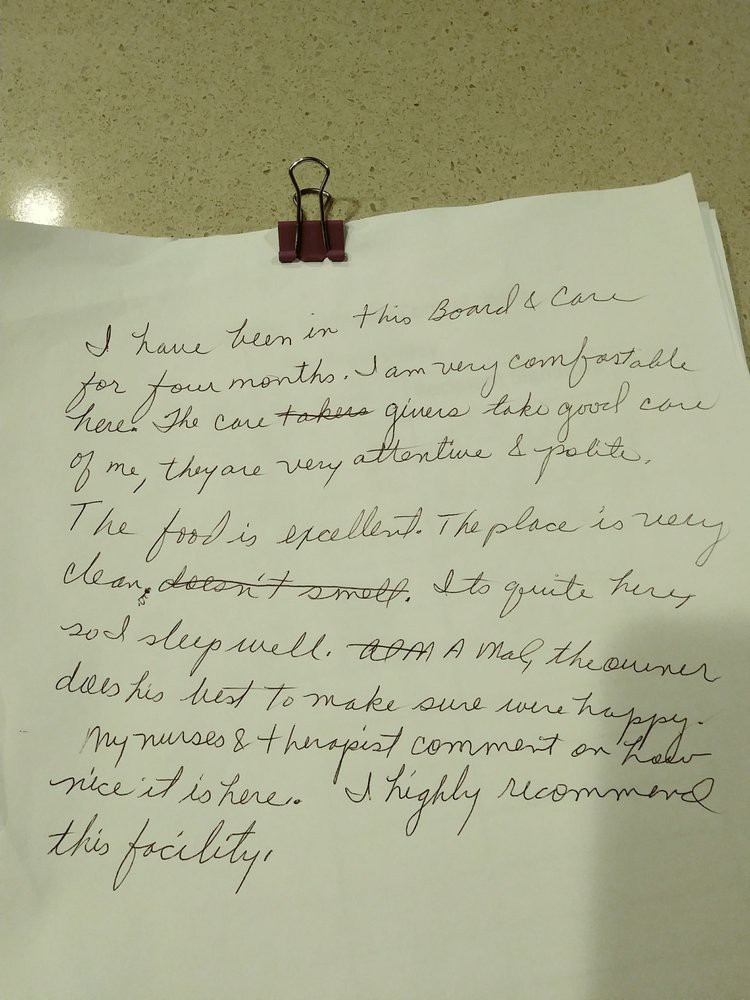 I have been in this Board & Care
for four months. I am very comfortable
here. The care takers givers take good care
of me, they are very attentive & polite.
The food is excellent. The place is very
clean, doesn't smell. Its quite here,
so I sleep well. A Mal, the owner
does his best to make sure were happy.
My nurses & therapist comment on how
nice it is here. I highly recommend
this facility.